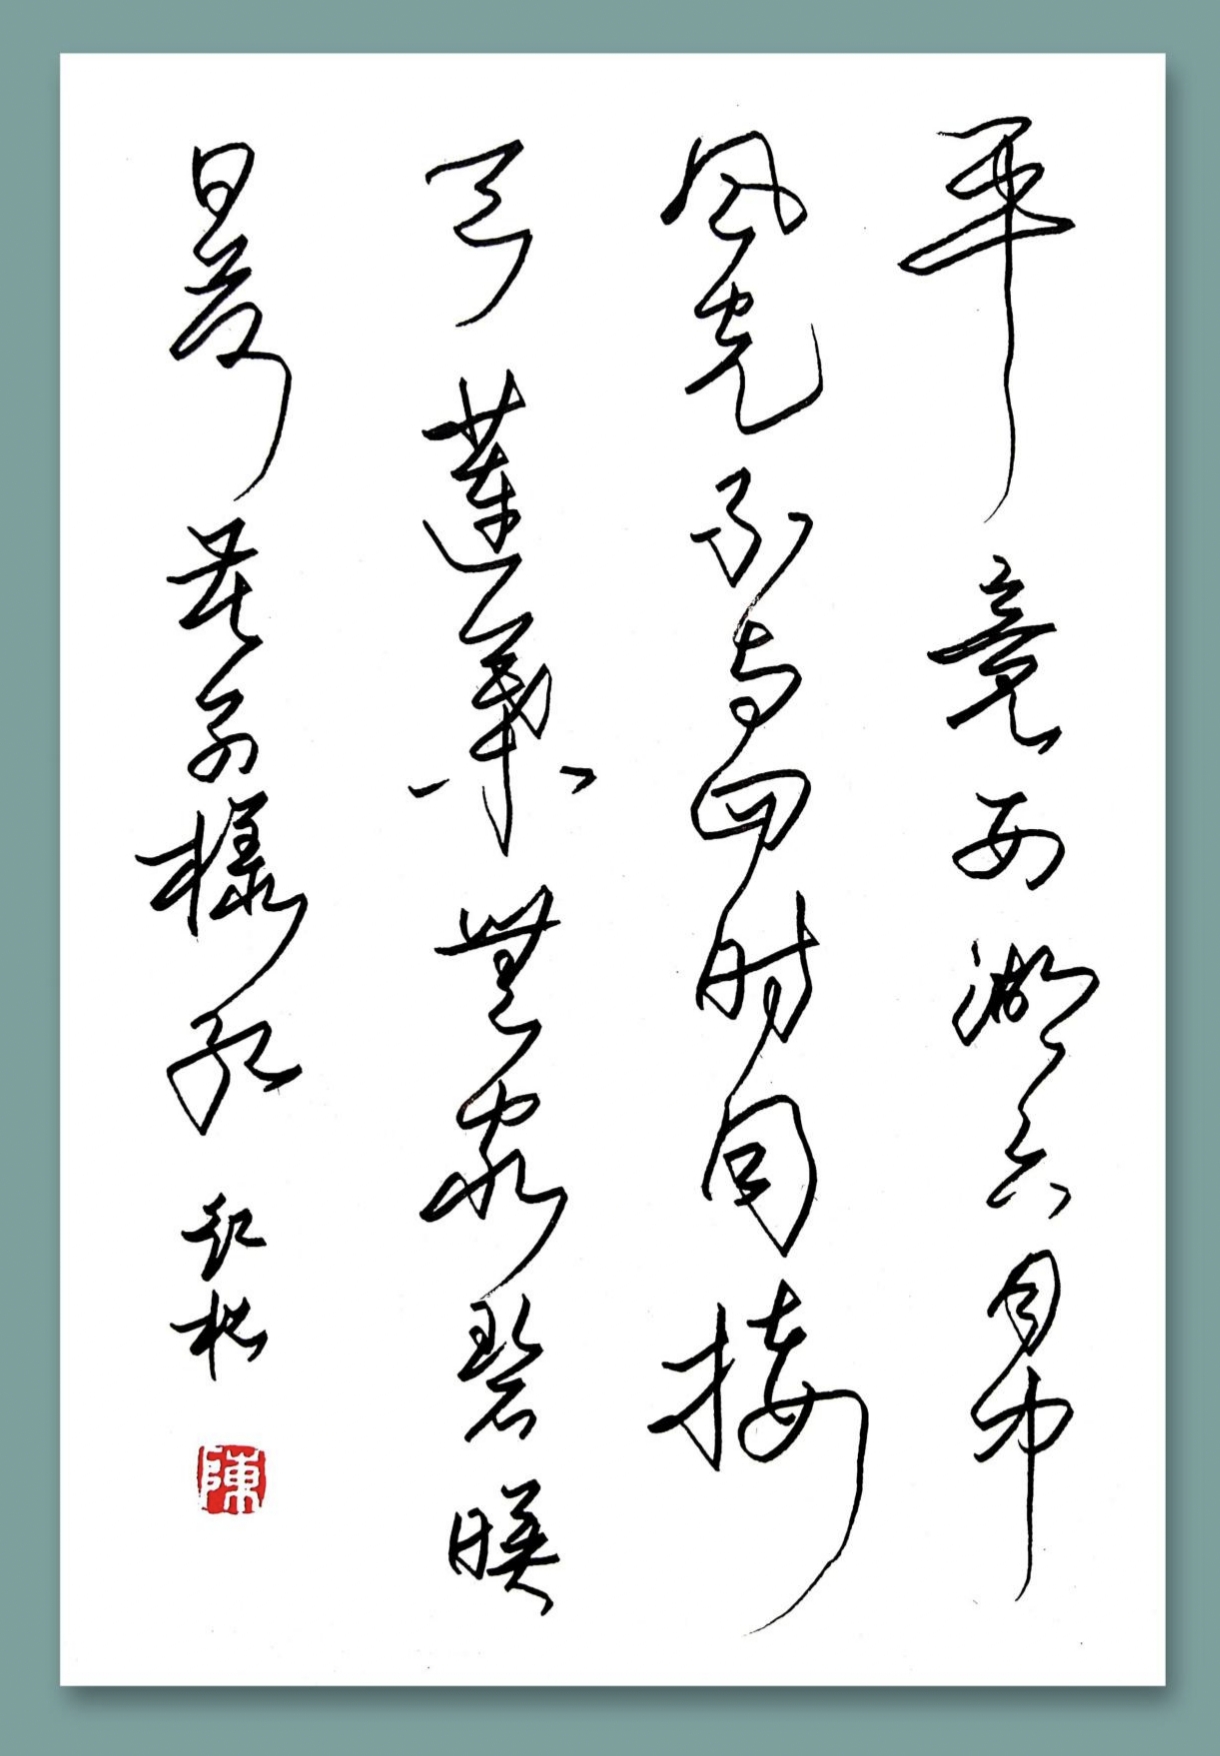 畢竟西湖六月中
風光不与四时同接
天蓮葉無窮碧映
日荷花别樣紅
陳